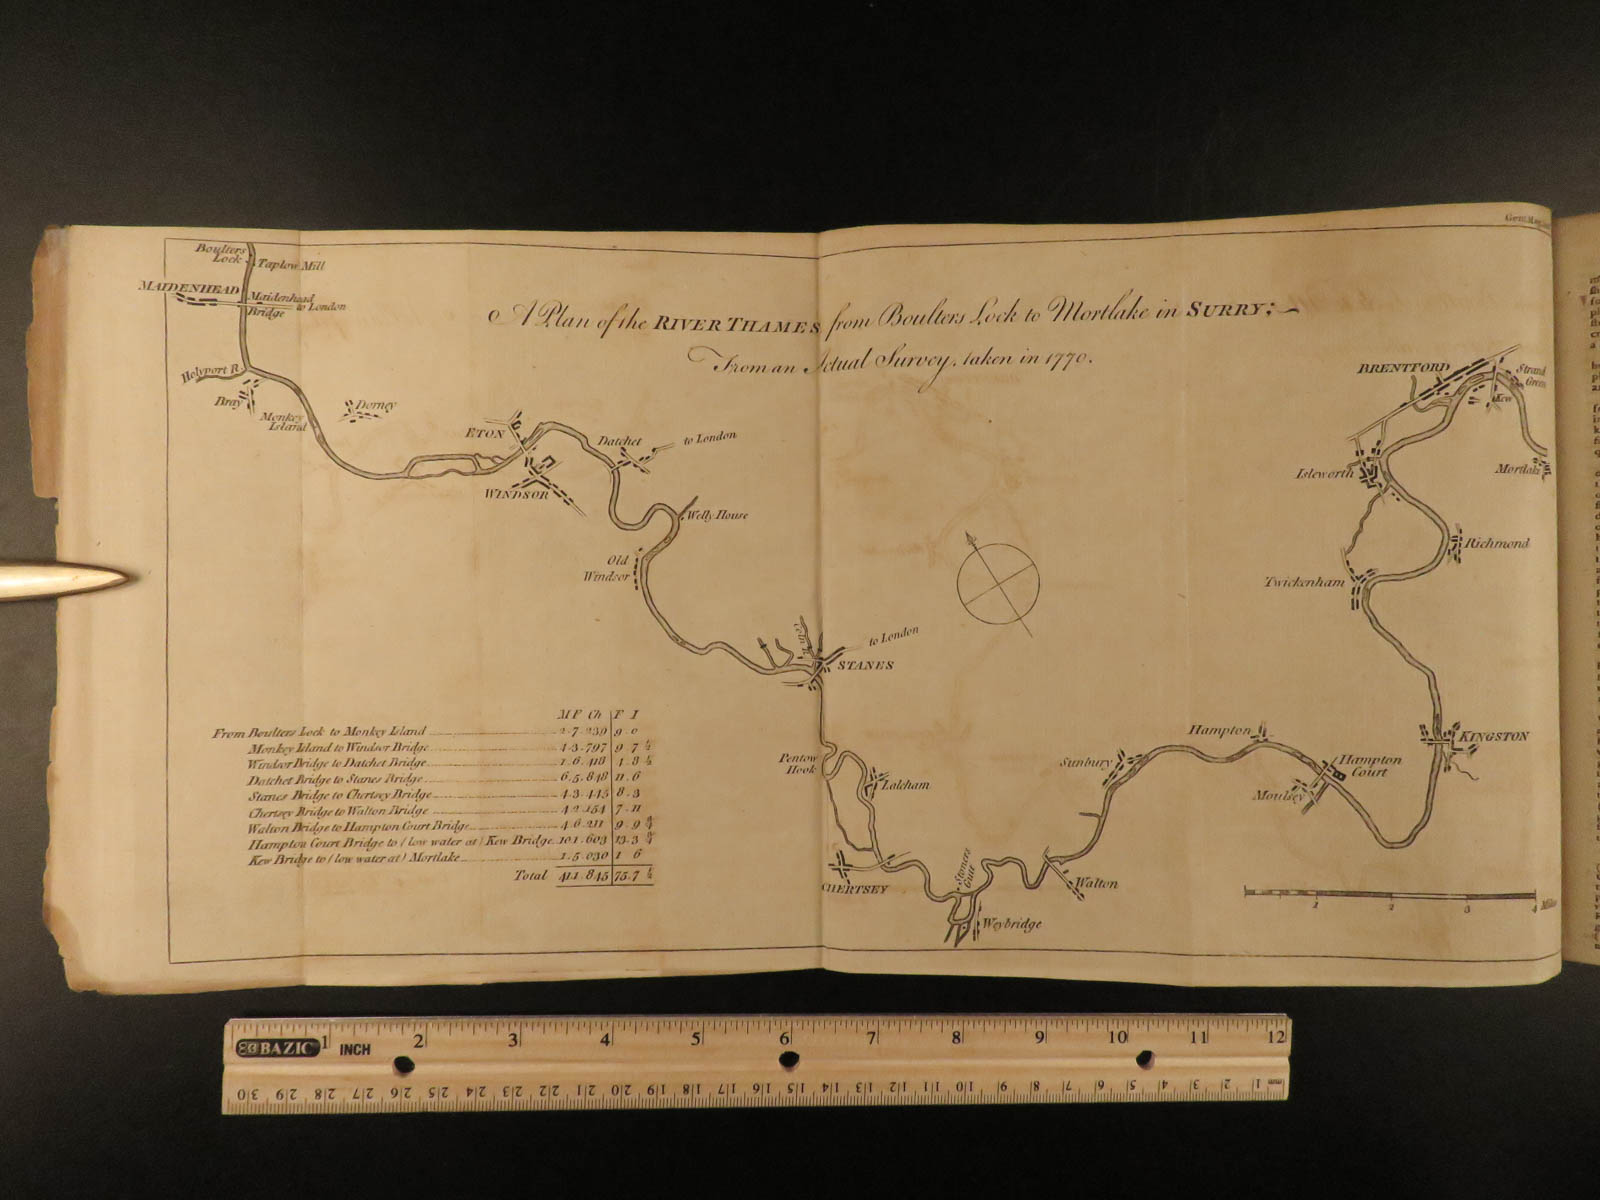 Gent. Mag.
A Plan of the RIVER THAMES from Boulters Lock to Mortlake in SURRY;
From an Actual Survey, taken in 1770.
Boulters
Lock
Taplow Mill
MAIDENHEAD
Maidenhead
Bridge
to London
Holyport R.
Bray
Monkey
Island
Dorney
ETON
WINDSOR
Datchet
to London
Welly House
Old
Windsor
STANES
to London
Pentow
Hook
Laleham
CHERTSEY
Stoners
Gutt
Weybridge
Walton
Sunbury
Hampton
Hampton
Court
Moulsey
KINGSTON
Twickenham
Richmond
Isleworth
BRENTFORD
Strand
Green
Kew
Mortlake
1 2 3 4 Miles
M F Ch F I
From Boulters Lock to Monkey Island 2.7.239 9.0
Monkey Island to Windsor Bridge 4.3.797 9 7 1/2
Windsor Bridge to Datchet Bridge 1.6.418 4.8 1/2
Datchet Bridge to Stanes Bridge 6.5.848 11.6
Stanes Bridge to Chertsey Bridge 4.3.445 8.3
Chertsey Bridge to Walton Bridge 4.2.154 7.11
Walton Bridge to Hampton Court Bridge 4.6.211 9.9 3/4
Hampton Court Bridge to (low water at) Kew Bridge 10.1.603 13.3 3/4
Kew Bridge to (low water at) Mortlake 1.5.030 1 6
Total 41.1.845 75.7 1/4
BAZIC
INCH
1 2 3 4 5 6 7 8 9 10 11 12
30 29 28 27 26 25 24 23 22 21 20 19 18 17 16 15 14 13 12 11 10 9 8 7 6 5 4 3 2 1 mm